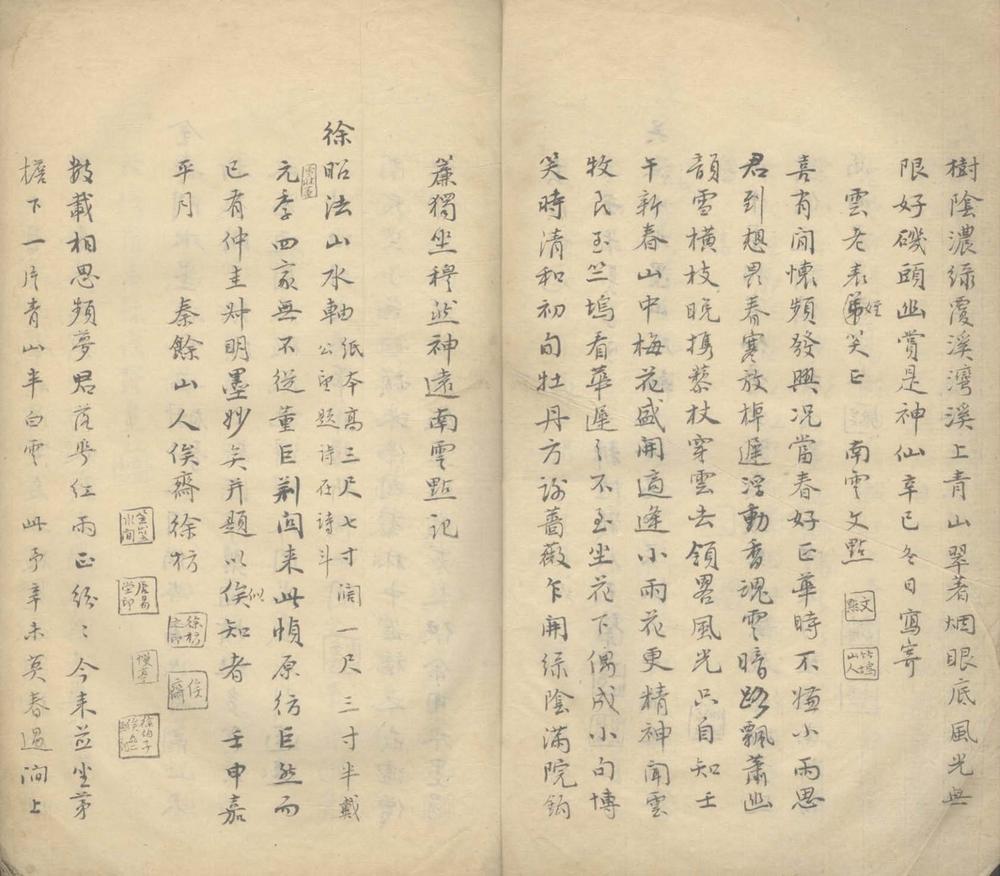 樹陰濃綠覆溪灣溪上青山翠著烟眼底風光無
限好磯頭幽賞是神仙辛巳冬日寫寄
雲老表弟姪笑正南雲文點
文點
竹塢山人
喜有閒懷頻發興况當春好正華時不嫌小雨思
君到想畏春寒放棹遲浮動香魂雲暗路飄蕭幽
韻雪橫枝晚携藜杖穿雲去領畧風光只自知壬
午新春山中梅花盛開適逢小雨花更精神聞雲
牧民至竺塢看華遲遲不至坐花下偶成小句博
笑時清和初旬牡丹方謝薔薇乍開綠陰滿院鈎
簾獨坐穆然神遠南雲點記
徐昭法山水軸紙本高三尺七寸濶一尺三寸半戴
公望題詩在詩斗
元季四家無不從董巨荆関来此幀原彷巨然而
已有仲圭叔明墨妙矣并題以俟知者壬申嘉
似
平月秦餘山人俟齋徐枋
徐枋之印
俟齋
居易堂印
數載相思頻夢君落華红雨正紛紛今来並坐茅
檐下一片青山半白雲此予辛未莫春過澗上